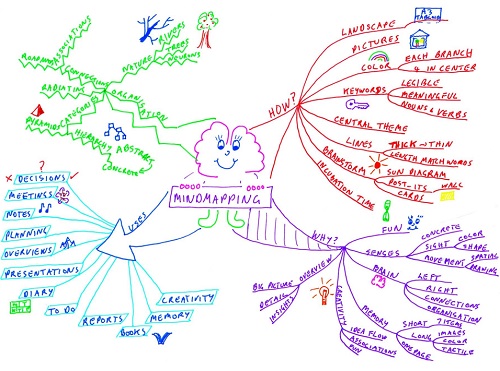 MINDMAPPING
HOW?
LANDSCAPE
A3
PICTURES
COLOR
EACH BRANCH
4 IN CENTER
KEYWORDS
LEGIBLE
MEANINGFUL
NOUNS & VERBS
CENTRAL THEME
LINES
THICK → THIN
LENGTH MATCH WORDS
BRAINSTORM
SUN DIAGRAM
POST-ITS
WALL
CARDS
INCUBATION TIME
WHY?
FUN
SENSES
CONCRETE
SIGHT
COLOR
SHAPE
MOVEMENT
SPATIAL
DRAWING
BRAIN
LEFT
RIGHT
CONNECTIONS
ORGANISATION
MEMORY
SHORT
7 ITEMS
LONG
IMAGES
COLOR
TACTILE
CREATIVITY
IDEA FLOW
ASSOCIATIONS
FUN
OVERVIEW
BIG PICTURE
DETAIL
INSIGHT
USES
?
X DECISIONS ✓
MEETINGS
NOTES
PLANNING
OVERVIEWS
PRESENTATIONS
DIARY
TO DO
REPORTS
BOOKS
MEMORY
CREATIVITY
ORGANISATION
NATURE
RIVERS
TREES
NEURONS
CONNECTIONS
ASSOCIATIONS
ROADMAP
RADIATING
CATEGORIES
PYRAMIDS
HIERARCHY
ABSTRACT
CONCRETE